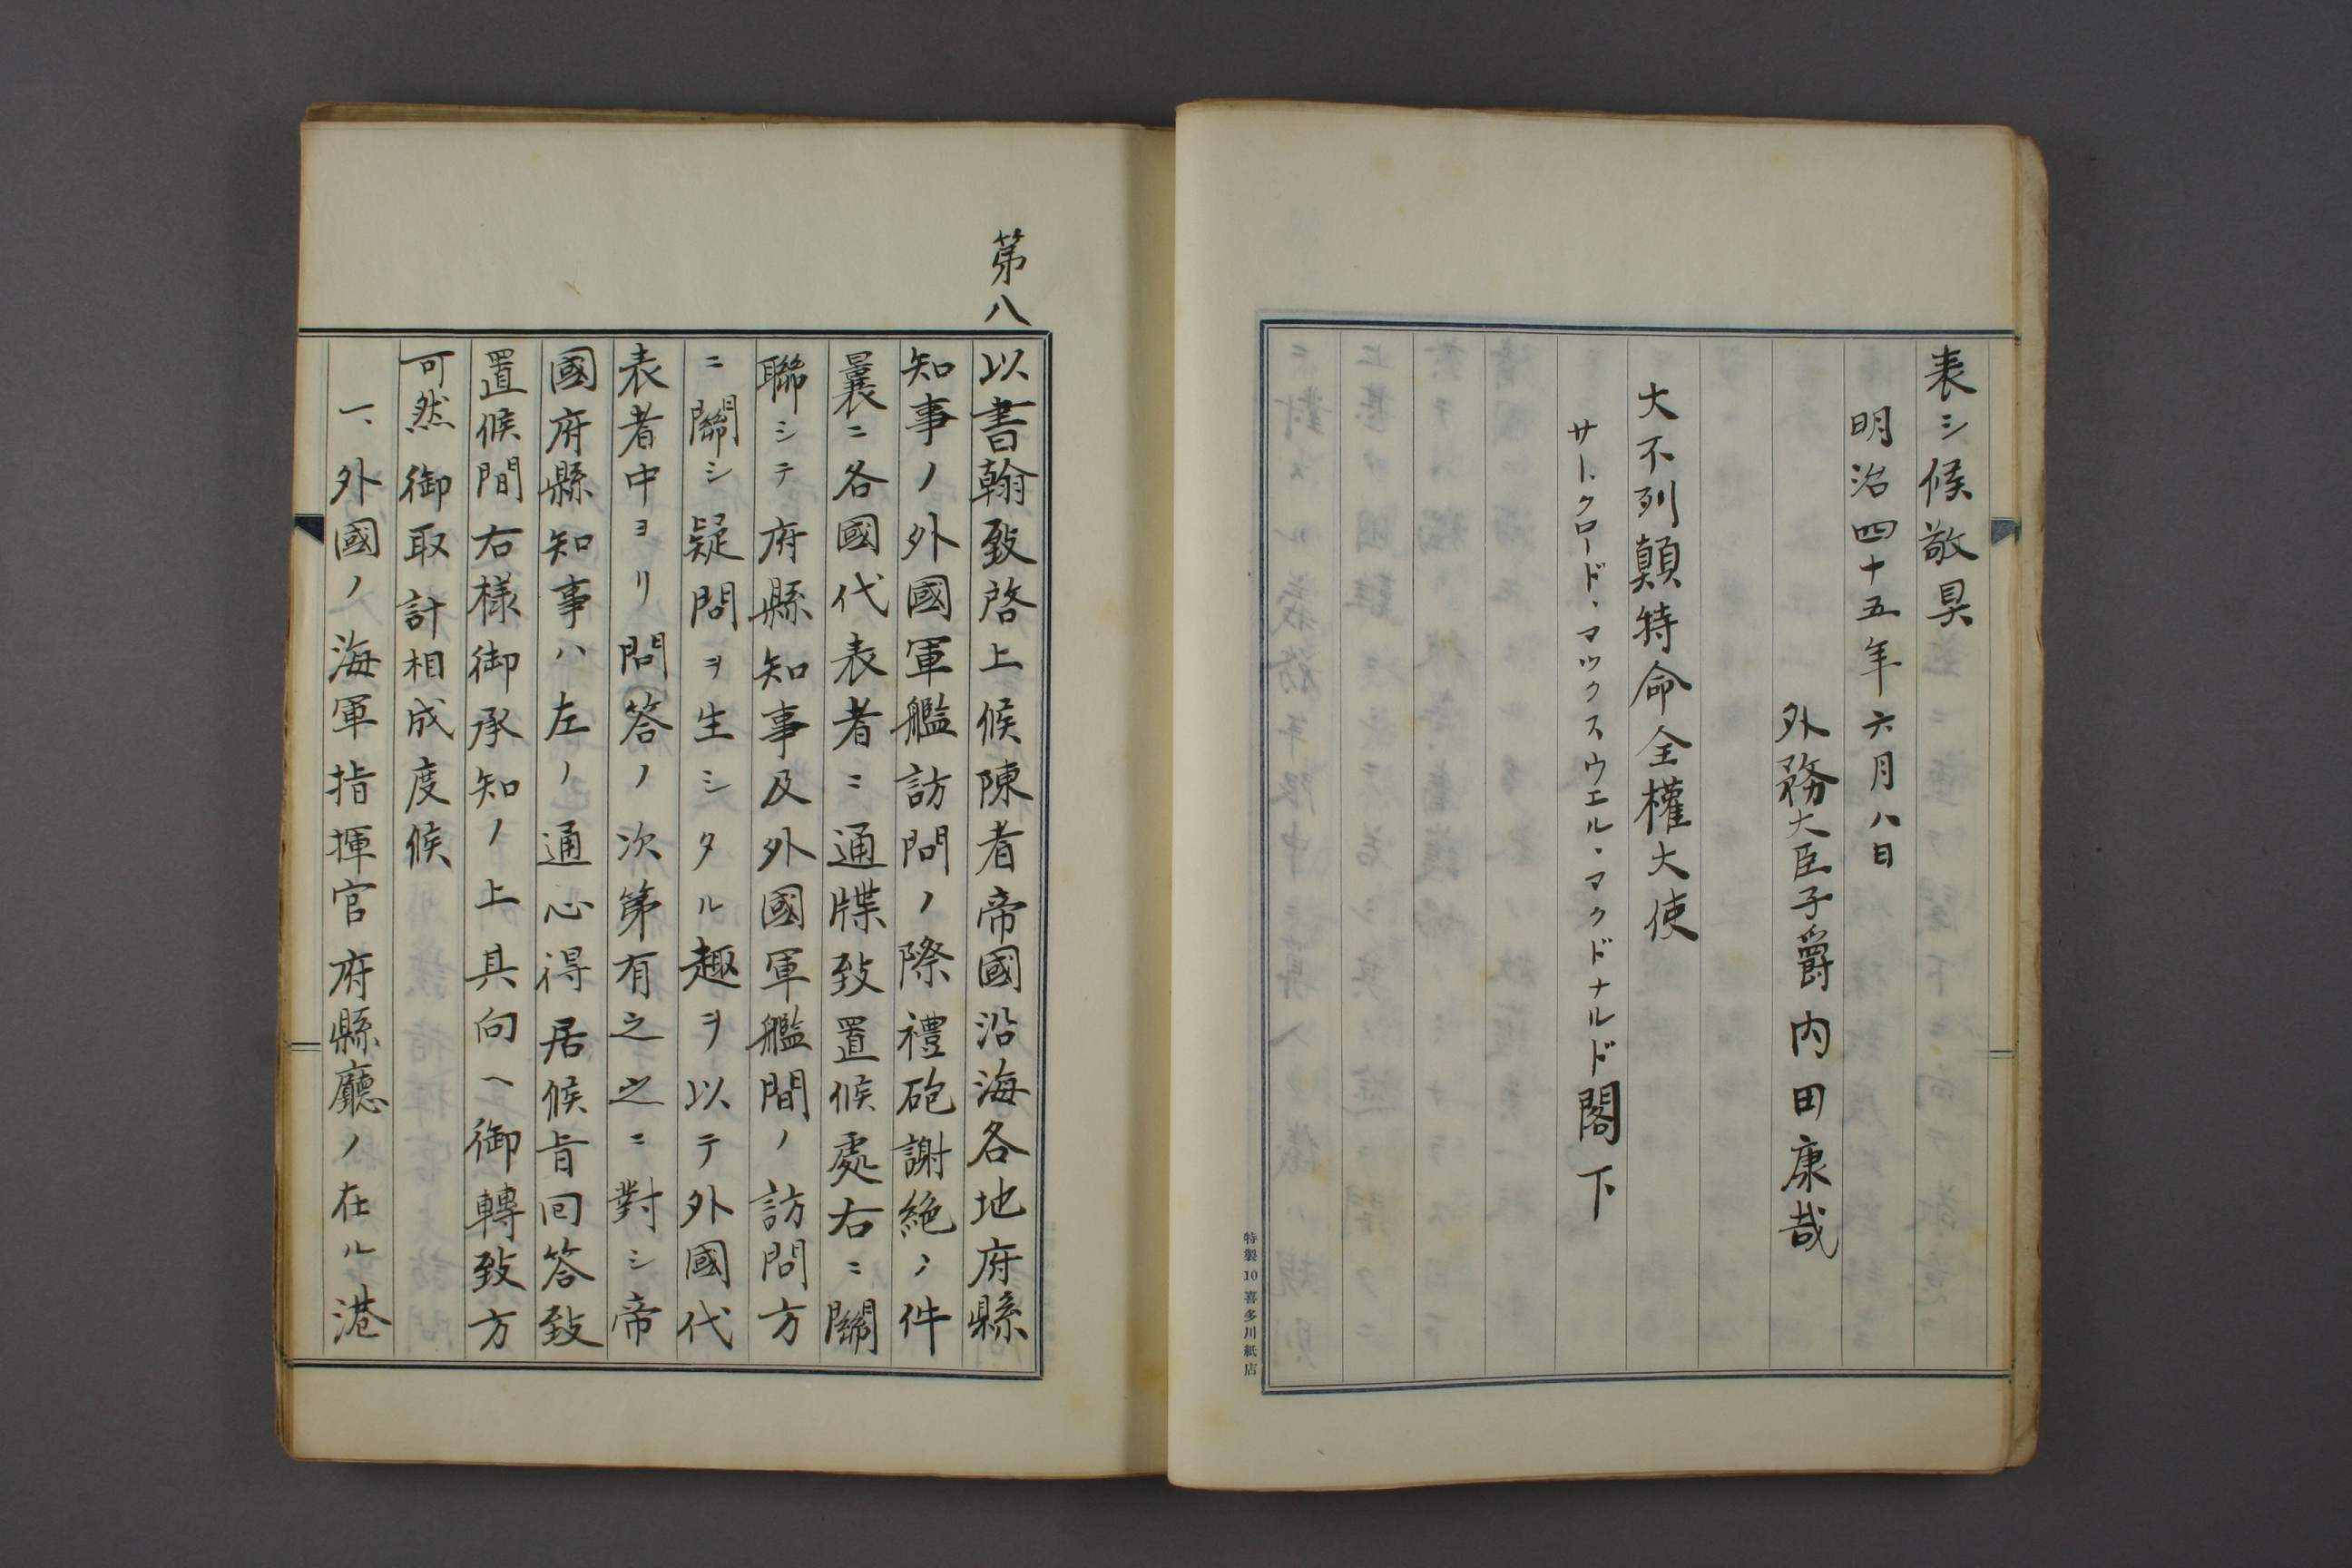 表シ候敬具
明治四十五年六月八日
外務大臣子爵内田康哉
大不列顛特命全權大使
サー、クロード、マックスウエル、マクドナルド閣下
特製10喜多川紙店
第八
以書翰致啓上候陳者帝國沿海各地府縣
知事ノ外國軍艦訪問ノ際禮砲謝絶ノ件
曩ニ各國代表者ニ通牒致置候處右ニ關
聯シテ府縣知事及外國軍艦間ノ訪問方
ニ關シ疑問ヲ生シタル趣ヲ以テ外國代
表者中ヨリ問答ノ次第有之之ニ對シ帝
國府縣知事ハ左ノ通心得居候旨回答致
置候間右樣御承知ノ上其向ヘ御轉致方
可然御取計相成度候
一、外國ノ海軍指揮官府縣廳ノ在ル港